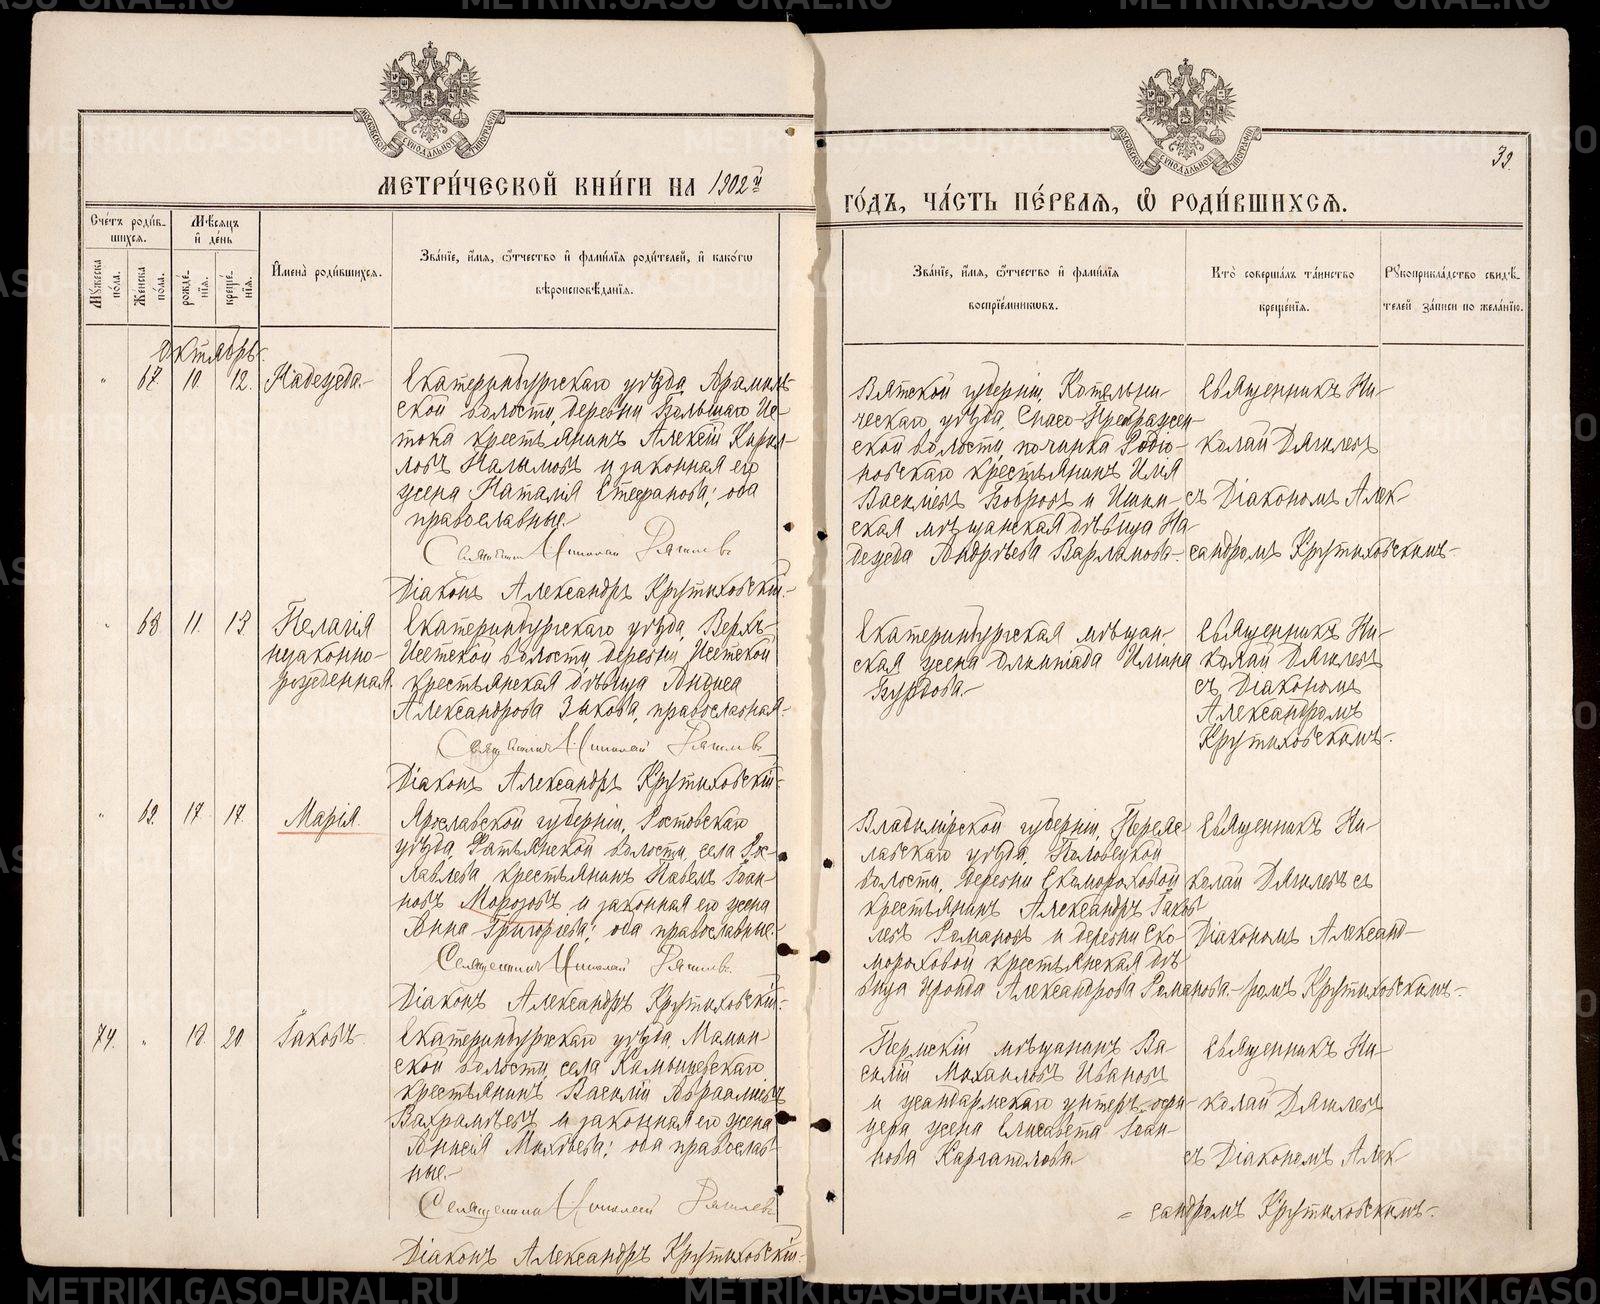 МЕТРИ́ЧЕСКОЙ КНИ́ГИ НА 1902й
ГО́ДЪ, ЧА́СТЬ ПЕ́РВАЯ, Ѡ РОДИ́ВШИХСЯ.
39.
Сче́тъ роди́в-
шихся.
Мѣсяцъ
и҆ де́нь
Мꙋжеска
по́ла.
Женска
по́ла.
рожде́-
нїя.
креще́-
нїя.
И҆мена̀ роди́вшихся.
Зва́нїе, и҆́мя, ѻ҆́тчество и҆ фами́лїя роди́телей, и҆ како́гѡ
вѣроисповѣ́данїя.
Зва́нїе, и҆́мя, ѻ҆́тчество и҆ фами́лїя
воспрїе́мникѡвъ.
Кто̀ соверша́лъ та́инство
креще́нїя.
Рꙋкоприкла́дство свидѣ́-
телей за́писи по жела́нїю.
Октябрь.
" 67. 10. 12. Надежда.
Екатеринбургскаго уѣзда, Арамиль-
ской волости, деревни Большаго Ис-
тока крестьянинъ Алексій Кирил-
ловъ Налимовъ и законная его
жена Наталія Стефанова; оба
православные.
Священникъ Николай Дягилевъ
Діаконъ Александръ Крутиховскій.
Вятской губерніи, Котельни-
ческаго уѣзда, Спасо-Преображен
ской волости, починка Родио-
новскаго крестьянинъ Илія
Васильевъ Бобровъ и Ишим-
ская мѣщанская дѣвица На
дежда Андреева Варлакова.
Священникъ Ни-
колай Дягилевъ
съ Діакономъ Алек-
сандромъ Крутиховскимъ.
" 68 11. 13. Пелагія
незаконно-
рожденная.
Екатеринбургскаго уѣзда, Верхъ-
Исетской волости, деревни Исетской
крестьянская дѣвица Анфиса
Александрова Зыкова, православная.
Священникъ Николай Дягилевъ
Діаконъ Александръ Крутиховскій.
Екатеринбургская мѣщан-
ская жена Олимпіада Ильина
Бурдова.
Священникъ Ни-
колай Дягилевъ
съ Діакономъ
Александромъ
Крутиховскимъ.
" 69. 17. 17. Марія.
Ярославской губерніи, Ростовскаго
уѣзда, Фатьянской волости, села Ро-
лавлева крестьянинъ Павелъ Іоан-
новъ Морозовъ и законная его жена
Анна Григоріева; оба православные.
Священникъ Николай Дягилевъ.
Діаконъ Александръ Крутиховскій.
Владимірской губерніи, Переяс-
лавскаго уѣзда, Половецкой
волости, деревни Скомороховой
крестьянинъ Александръ Іаков
левъ Романовъ и деревни Ско-
мороховой крестьянская дѣ-
вица Ираида Александрова Романова.
Священникъ Ни-
колай Дягилевъ съ
Діакономъ Александ-
ромъ Крутиховскимъ.
74. " 18. 20 Іаковъ.
Екатеринбургскаго уѣзда, Мамин-
ской волости, села Камышевскаго
крестьянинъ Василій Авраамиевъ
Вахрамѣевъ и законная его жена
Анисія Маковѣева; оба православ-
ные.
Священникъ Николай Дягилевъ
Діаконъ Александръ Крутиховскій.
Пермскій мѣщанинъ Ва-
силій Михаиловъ Ивановъ
и жандармскаго унтеръ-офи-
цера жена Елисавета Іоан-
нова Каргаполова.
Священникъ Ни-
колай Дягилевъ
съ Діакономъ Алек-
= сандромъ Крутиховскимъ.
METRIKI.GASO-URAL.RU